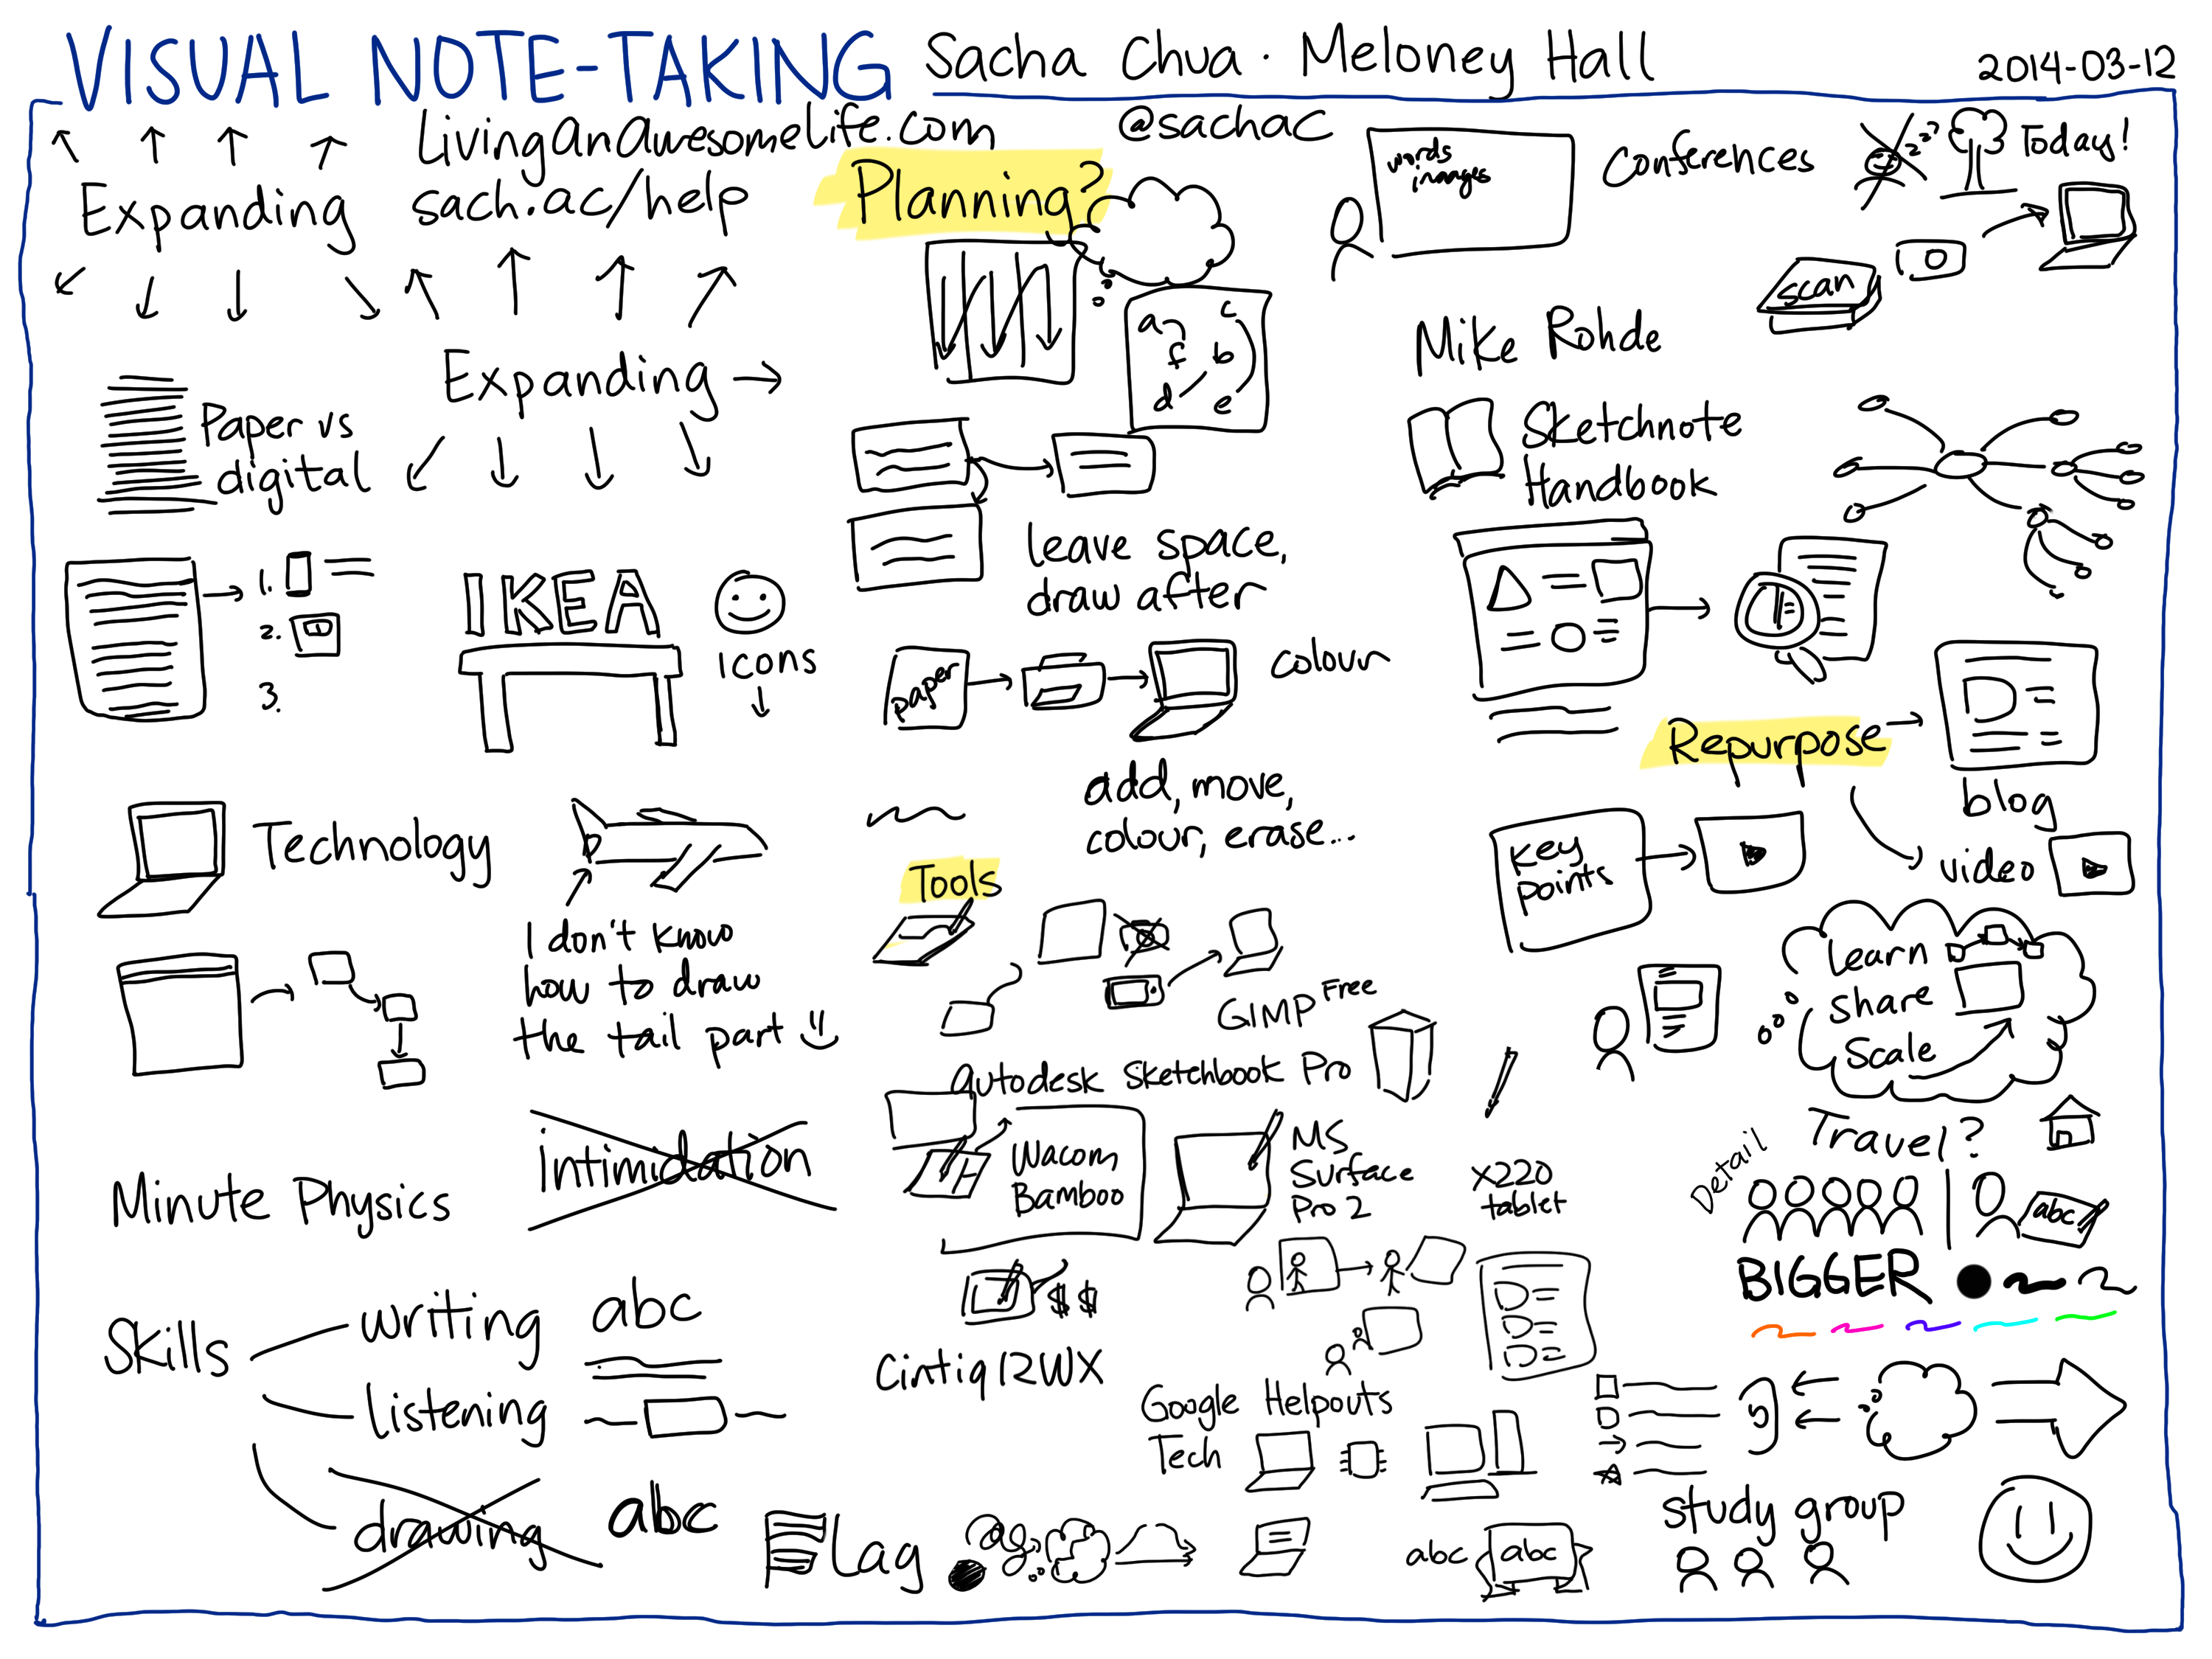 VISUAL NOTE-TAKING Sacha Chua · Meloney Hall
2014-03-12
LivingAnAwesomeLife.com
@sachac
sach.ac/help
Expanding
Expanding
Paper vs
digital
1.
2.
3.
IKEA
icons
Technology
I don't know
how to draw
the tail part
Minute Physics
intimidation
Skills
writing
abc
listening
drawing
abc
Planning?
a
c
f
b
d
e
leave space,
draw after
paper
colour
add, move,
colour, erase...
Tools
GIMP Free
Autodesk Sketchbook Pro
Wacom
Bamboo
MS
Surface
Pro 2
X220
tablet
$$
Cintiq 12WX
Google Helpouts
Tech
Flag
abc
abc
words
images
Conferences
Today!
scan
Mike Rohde
Sketchnote
Handbook
Repurpose
blog
Key
points
video
Learn
share
Scale
Travel?
Detail
abc
BIGGER
study group